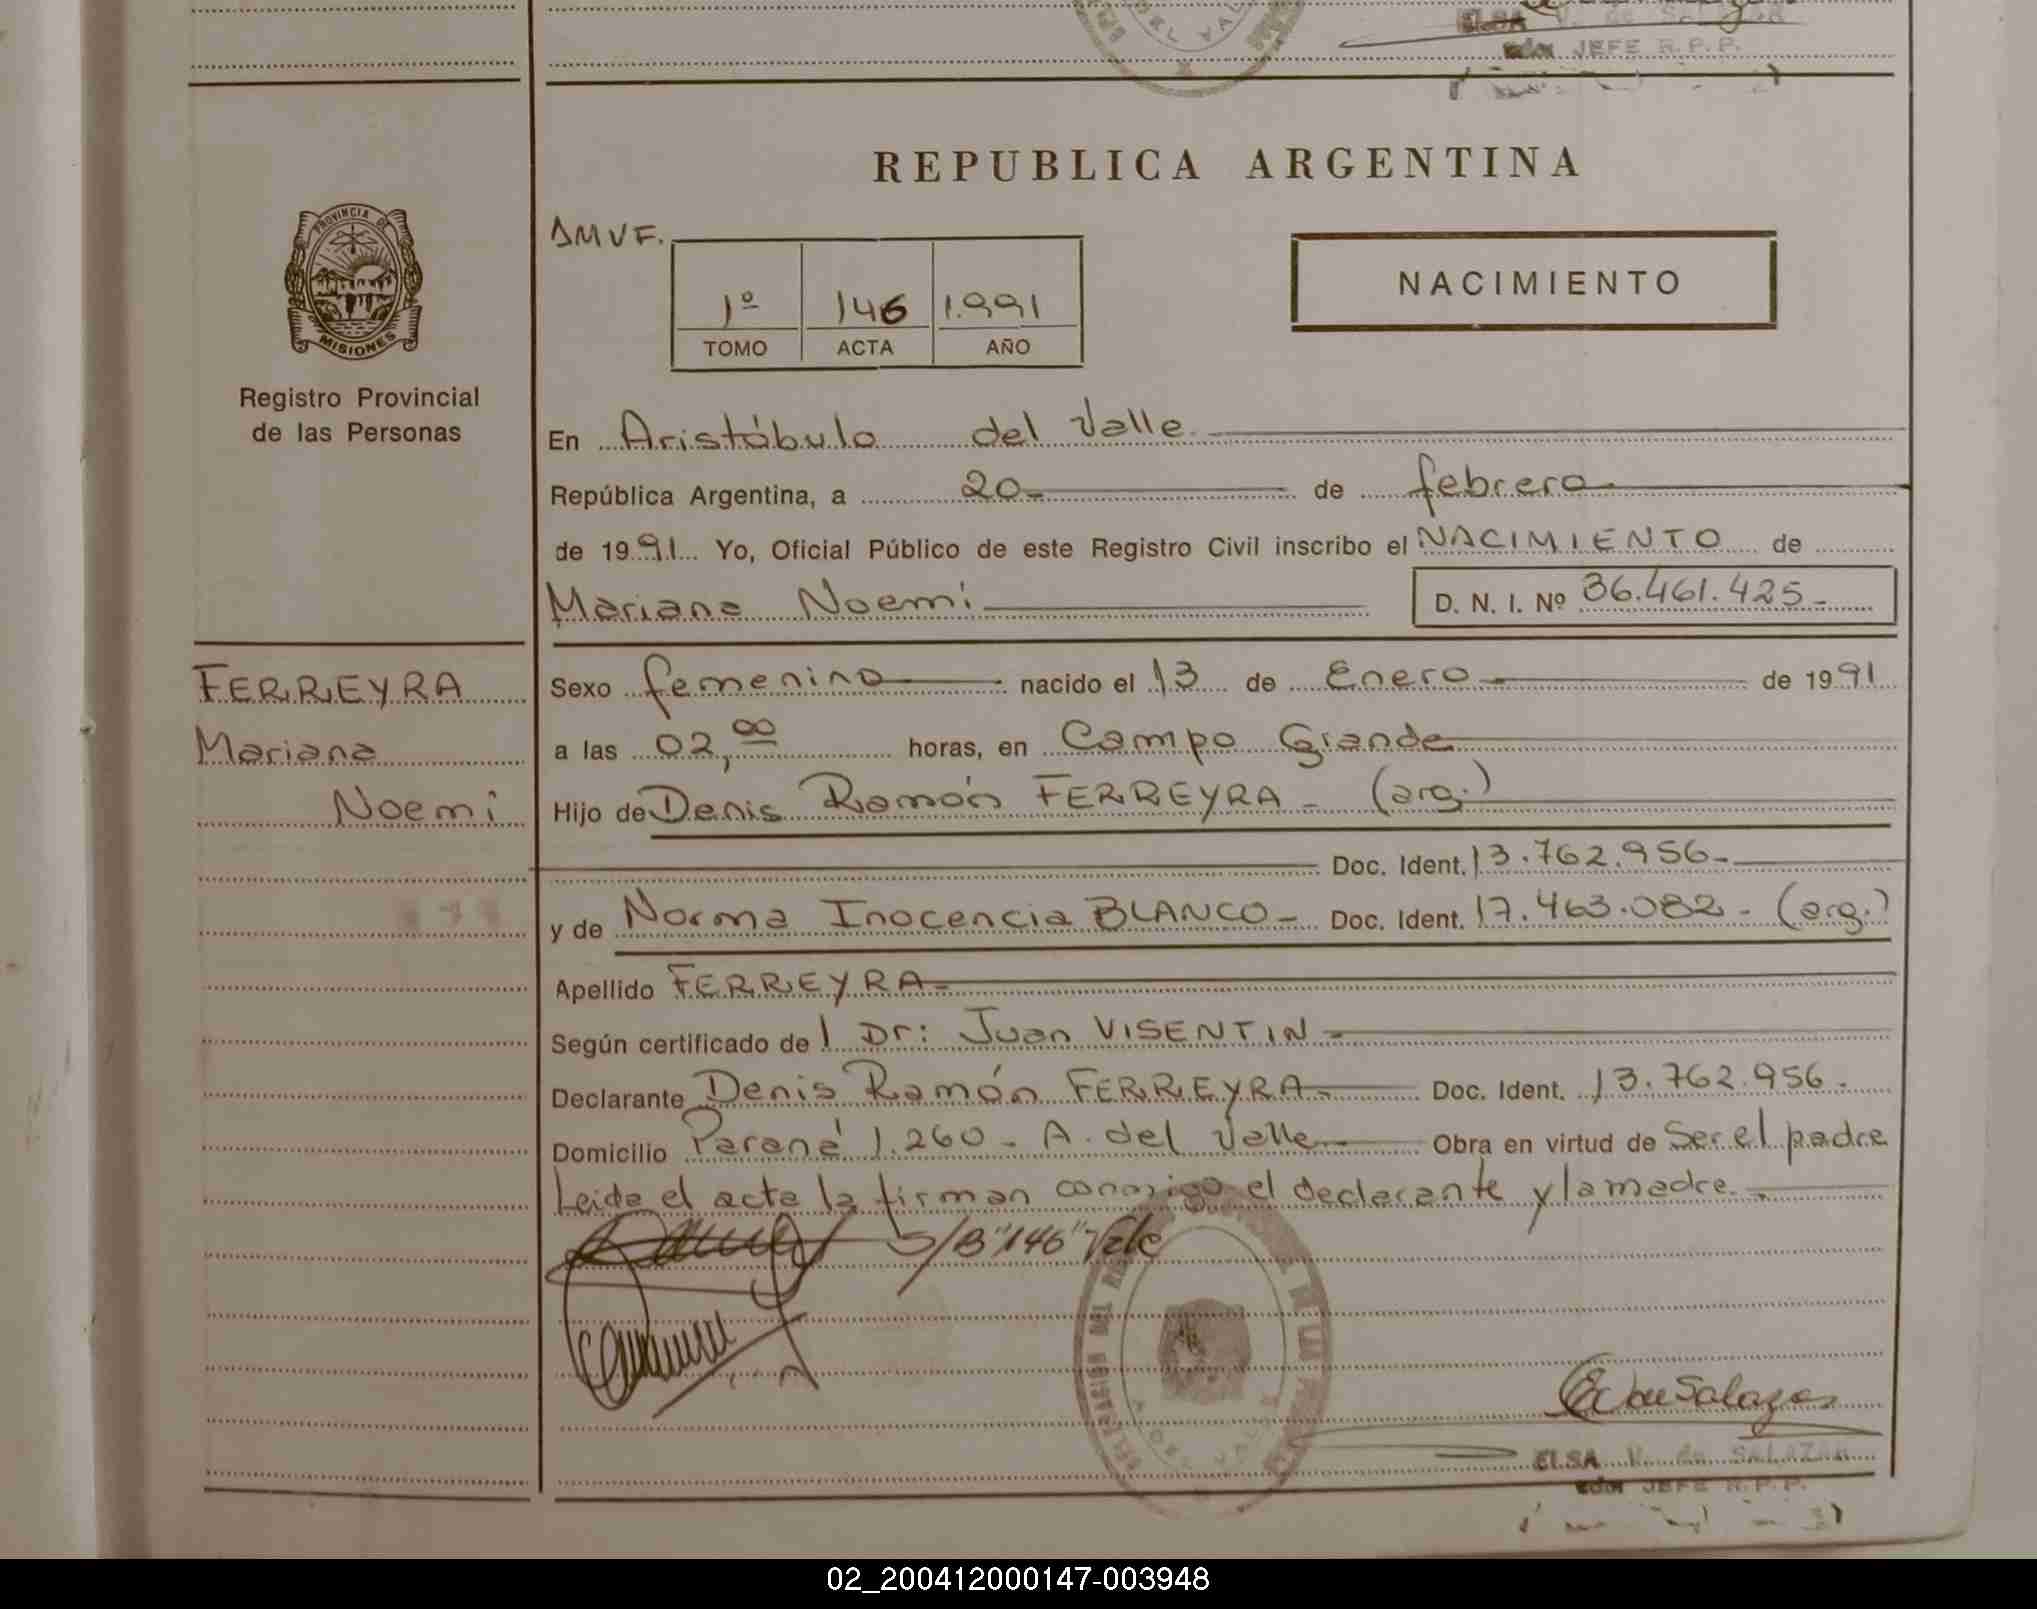 ELSA V. de SALAZAR
JEFE R.P.P.
REPUBLICA ARGENTINA
PROVINCIA DE
MISIONES
Registro Provincial
de las Personas
DMVF.
1º 146 1.991
TOMO ACTA AÑO
NACIMIENTO
En Aristóbulo del Valle
República Argentina, a 20 de febrero
de 1991 Yo, Oficial Público de este Registro Civil inscribo el NACIMIENTO de
Mariana Noemi D. N. I. Nº 36.461.425-
FERREYRA
Mariana
Noemi
Sexo femenino nacido el 13 de Enero de 1991
a las 02,00 horas, en Campo Grande
Hijo de Denis Ramón FERREYRA - (arg.)
Doc. Ident. 13.762.956-
y de Norma Inocencia BLANCO- Doc. Ident. 17.463.082- (arg.)
Apellido FERREYRA-
Según certificado de l Dr: Juan VISENTIN-
Declarante Denis Ramón FERREYRA- Doc. Ident. 13.762.956-
Domicilio Paraná 1.260- A. del Valle Obra en virtud de Ser el padre
Leida el acta la firman conmigo el declarante y la madre.
S/B "146" Vale
E V de Salazar
ELSA V. de SALAZAR
JEFE R.P.P.
02_200412000147-003948